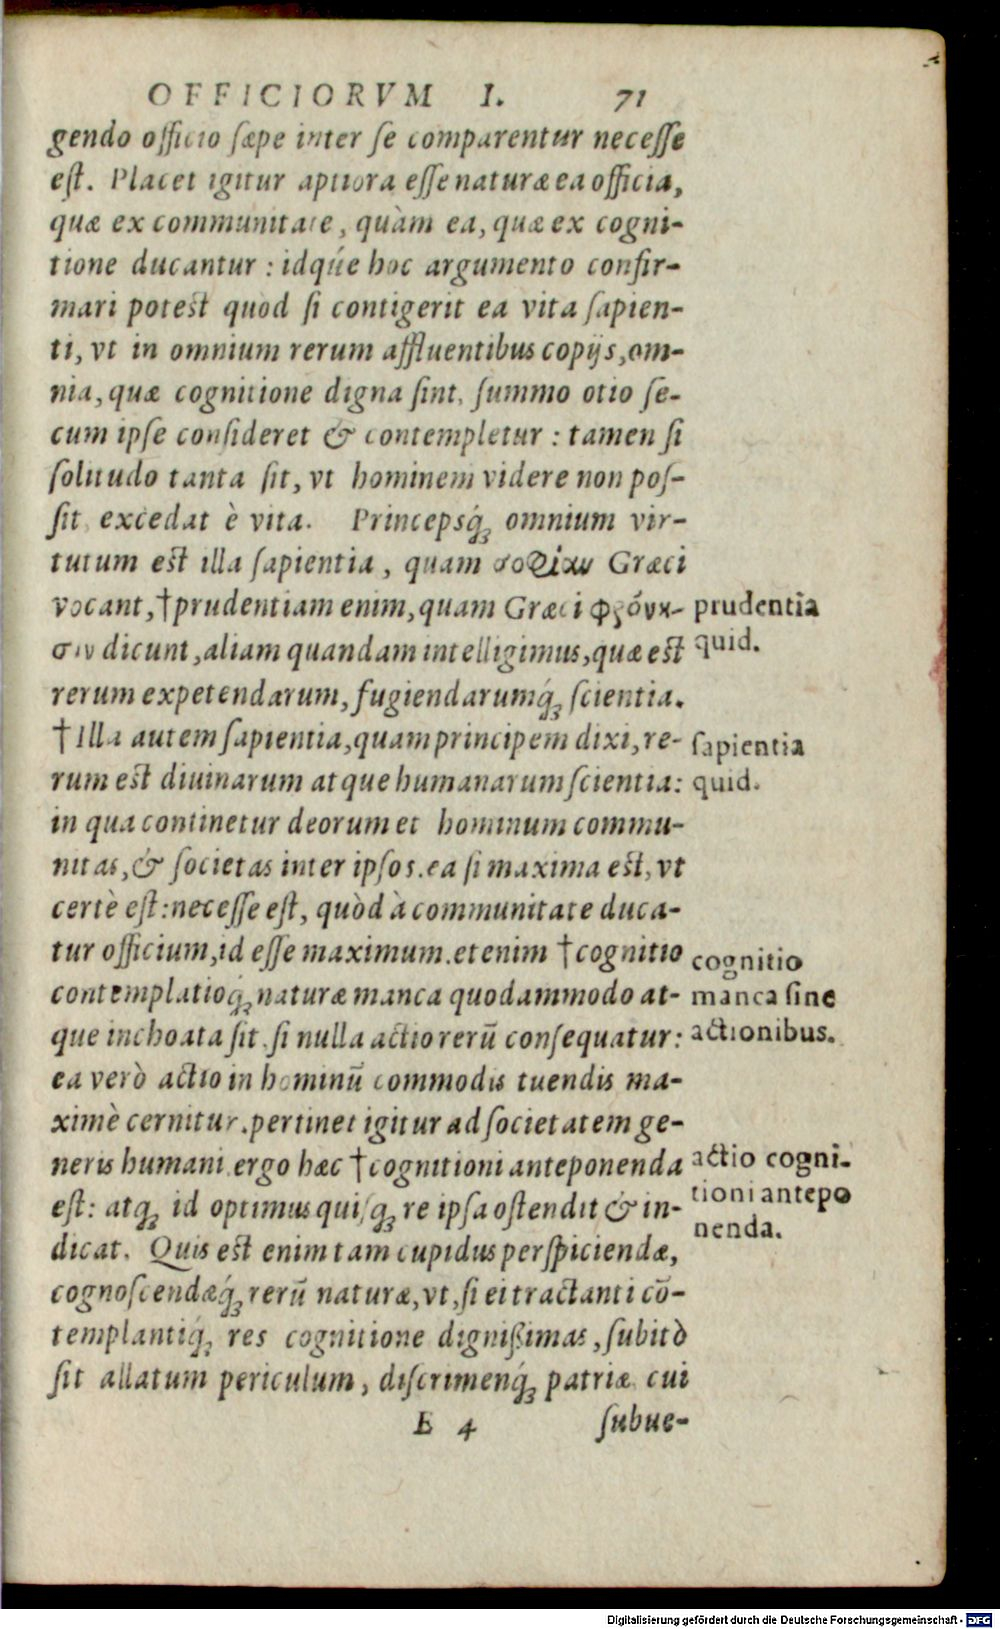 OFFICIORVM I. 71
gendo officio sæpe inter se comparentur necesse
est. Placet igitur aptiora esse naturæ ea officia,
quæ ex communitate, quàm ea, quæ ex cogni-
tione ducantur: idq́ue hoc argumento confir-
mari potest quòd si contigerit ea vita sapien-
ti, vt in omnium rerum affluentibus copijs, om-
nia, quæ cognitione digna sint, summo otio se-
cum ipse consideret & contempletur: tamen si
solitudo tanta sit, vt hominem videre non pos-
sit, excedat è vita. Princepsq́; omnium vir-
tutum est illa sapientia, quam σοφίαν Græci
vocant, †prudentiam enim, quam Græci φρόνη-
σιν dicunt, aliam quandam intelligimus, quæ est
rerum expetendarum, fugiendarumq́; scientia.
†Illa autem sapientia, quam principem dixi, re-
rum est diuinarum atque humanarum scientia:
in qua continetur deorum et hominum commu-
nitas, & societas inter ipsos. ea si maxima est, vt
certè est: necesse est, quòd à communitate duca-
tur officium, id esse maximum. etenim †cognitio
contemplatioq́; naturæ manca quodammodo at-
que inchoata sit, si nulla actio rerū consequatur:
ea verò actio in hominū commodis tuendis ma-
ximè cernitur. pertinet igitur ad societatem ge-
neris humani. ergo hæc †cognitioni anteponenda
est: atq; id optimus quisq; re ipsa ostendit & in-
dicat. Quis est enim tam cupidus perspiciendæ,
cognoscendæq́; rerū naturæ, vt, si ei tractanti cō-
templantiq́; res cognitione dignißimas, subitò
sit allatum periculum, discrimenq́; patriæ, cui
E 4 subue-
prudentia
quid.
sapientia
quid.
cognitio
manca sine
actionibus.
actio cogni-
tioni antepo
nenda.
Digitalisierung gefördert durch die Deutsche Forschungsgemeinschaft - DFG